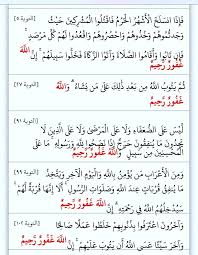 فَإِذَا انسَلَخَ الْأَشْهُرُ الْحُرُمُ فَاقْتُلُوا الْمُشْرِكِينَ حَيْثُ [التوبة ٥]
وَجَدتُّمُوهُمْ وَخُذُوهُمْ وَاحْصُرُوهُمْ وَاقْعُدُوا لَهُمْ كُلَّ مَرْصَدٍ
فَإِن تَابُوا وَأَقَامُوا الصَّلَاةَ وَآتَوُا الزَّكَاةَ فَخَلُّوا سَبِيلَهُمْ إِنَّ اللَّهَ
غَفُورٌ رَّحِيمٌ
ثُمَّ يَتُوبُ اللَّهُ مِن بَعْدِ ذَلِكَ عَلَى مَن يَشَاءُ وَاللَّهُ [التوبة ٢٧]
غَفُورٌ رَّحِيمٌ
لَّيْسَ عَلَى الضُّعَفَاءِ وَلَا عَلَى الْمَرْضَى وَلَا عَلَى الَّذِينَ [التوبة ٩١]
لَا يَجِدُونَ مَا يُنفِقُونَ حَرَجٌ إِذَا نَصَحُوا لِلَّهِ وَرَسُولِهِ مَا عَلَى
الْمُحْسِنِينَ مِن سَبِيلٍ وَاللَّهُ غَفُورٌ رَّحِيمٌ
وَمِنَ الْأَعْرَابِ مَن يُؤْمِنُ بِاللَّهِ وَالْيَوْمِ الْآخِرِ وَيَتَّخِذُ [التوبة ٩٩]
مَا يُنفِقُ قُرُبَاتٍ عِندَ اللَّهِ وَصَلَوَاتِ الرَّسُولِ أَلَا إِنَّهَا قُرْبَةٌ لَّهُمْ
سَيُدْخِلُهُمُ اللَّهُ فِي رَحْمَتِهِ إِنَّ اللَّهَ غَفُورٌ رَّحِيمٌ
وَآخَرُونَ اعْتَرَفُوا بِذُنُوبِهِمْ خَلَطُوا عَمَلًا صَالِحًا [التوبة ١٠٢]
وَآخَرَ سَيِّئًا عَسَى اللَّهُ أَن يَتُوبَ عَلَيْهِمْ إِنَّ اللَّهَ غَفُورٌ رَّحِيمٌ